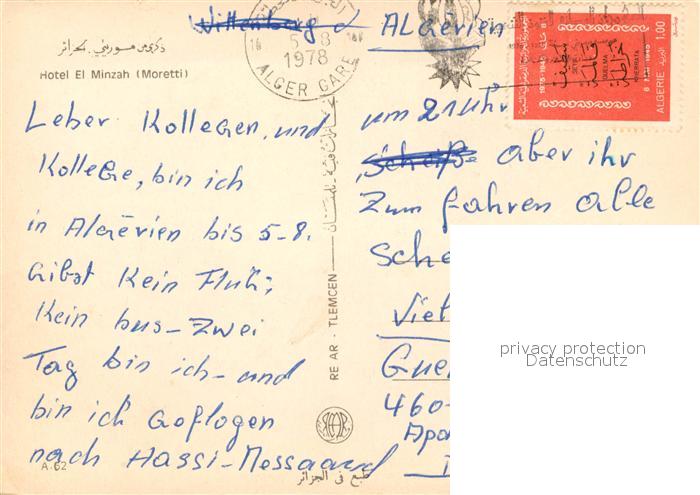 Algerien
ذكرى من موريتي الجزائر
Hotel El Minzah (Moretti)
5-8
1978
ALGER GARE
1975-1945
SETIF
GUELMA
KHERRATA
8 MAI 1945
ALGERIE 1.00
Leber Kollegen, und
Kollege, bin ich
in Algerien bis 5-8.
Gibst Kein Flug;
Kein bus-Zwei
Tag bin ich-und
bin ich Goflogen
nach Hassi-Messaoud
um 21 uhr
aber ihr
Zum fahren alle
Sche
Viet
Gue
460-
Apa
RE AR - TLEMCEN
A. 62
طبع في الجزائر
privacy protection
Datenschutz